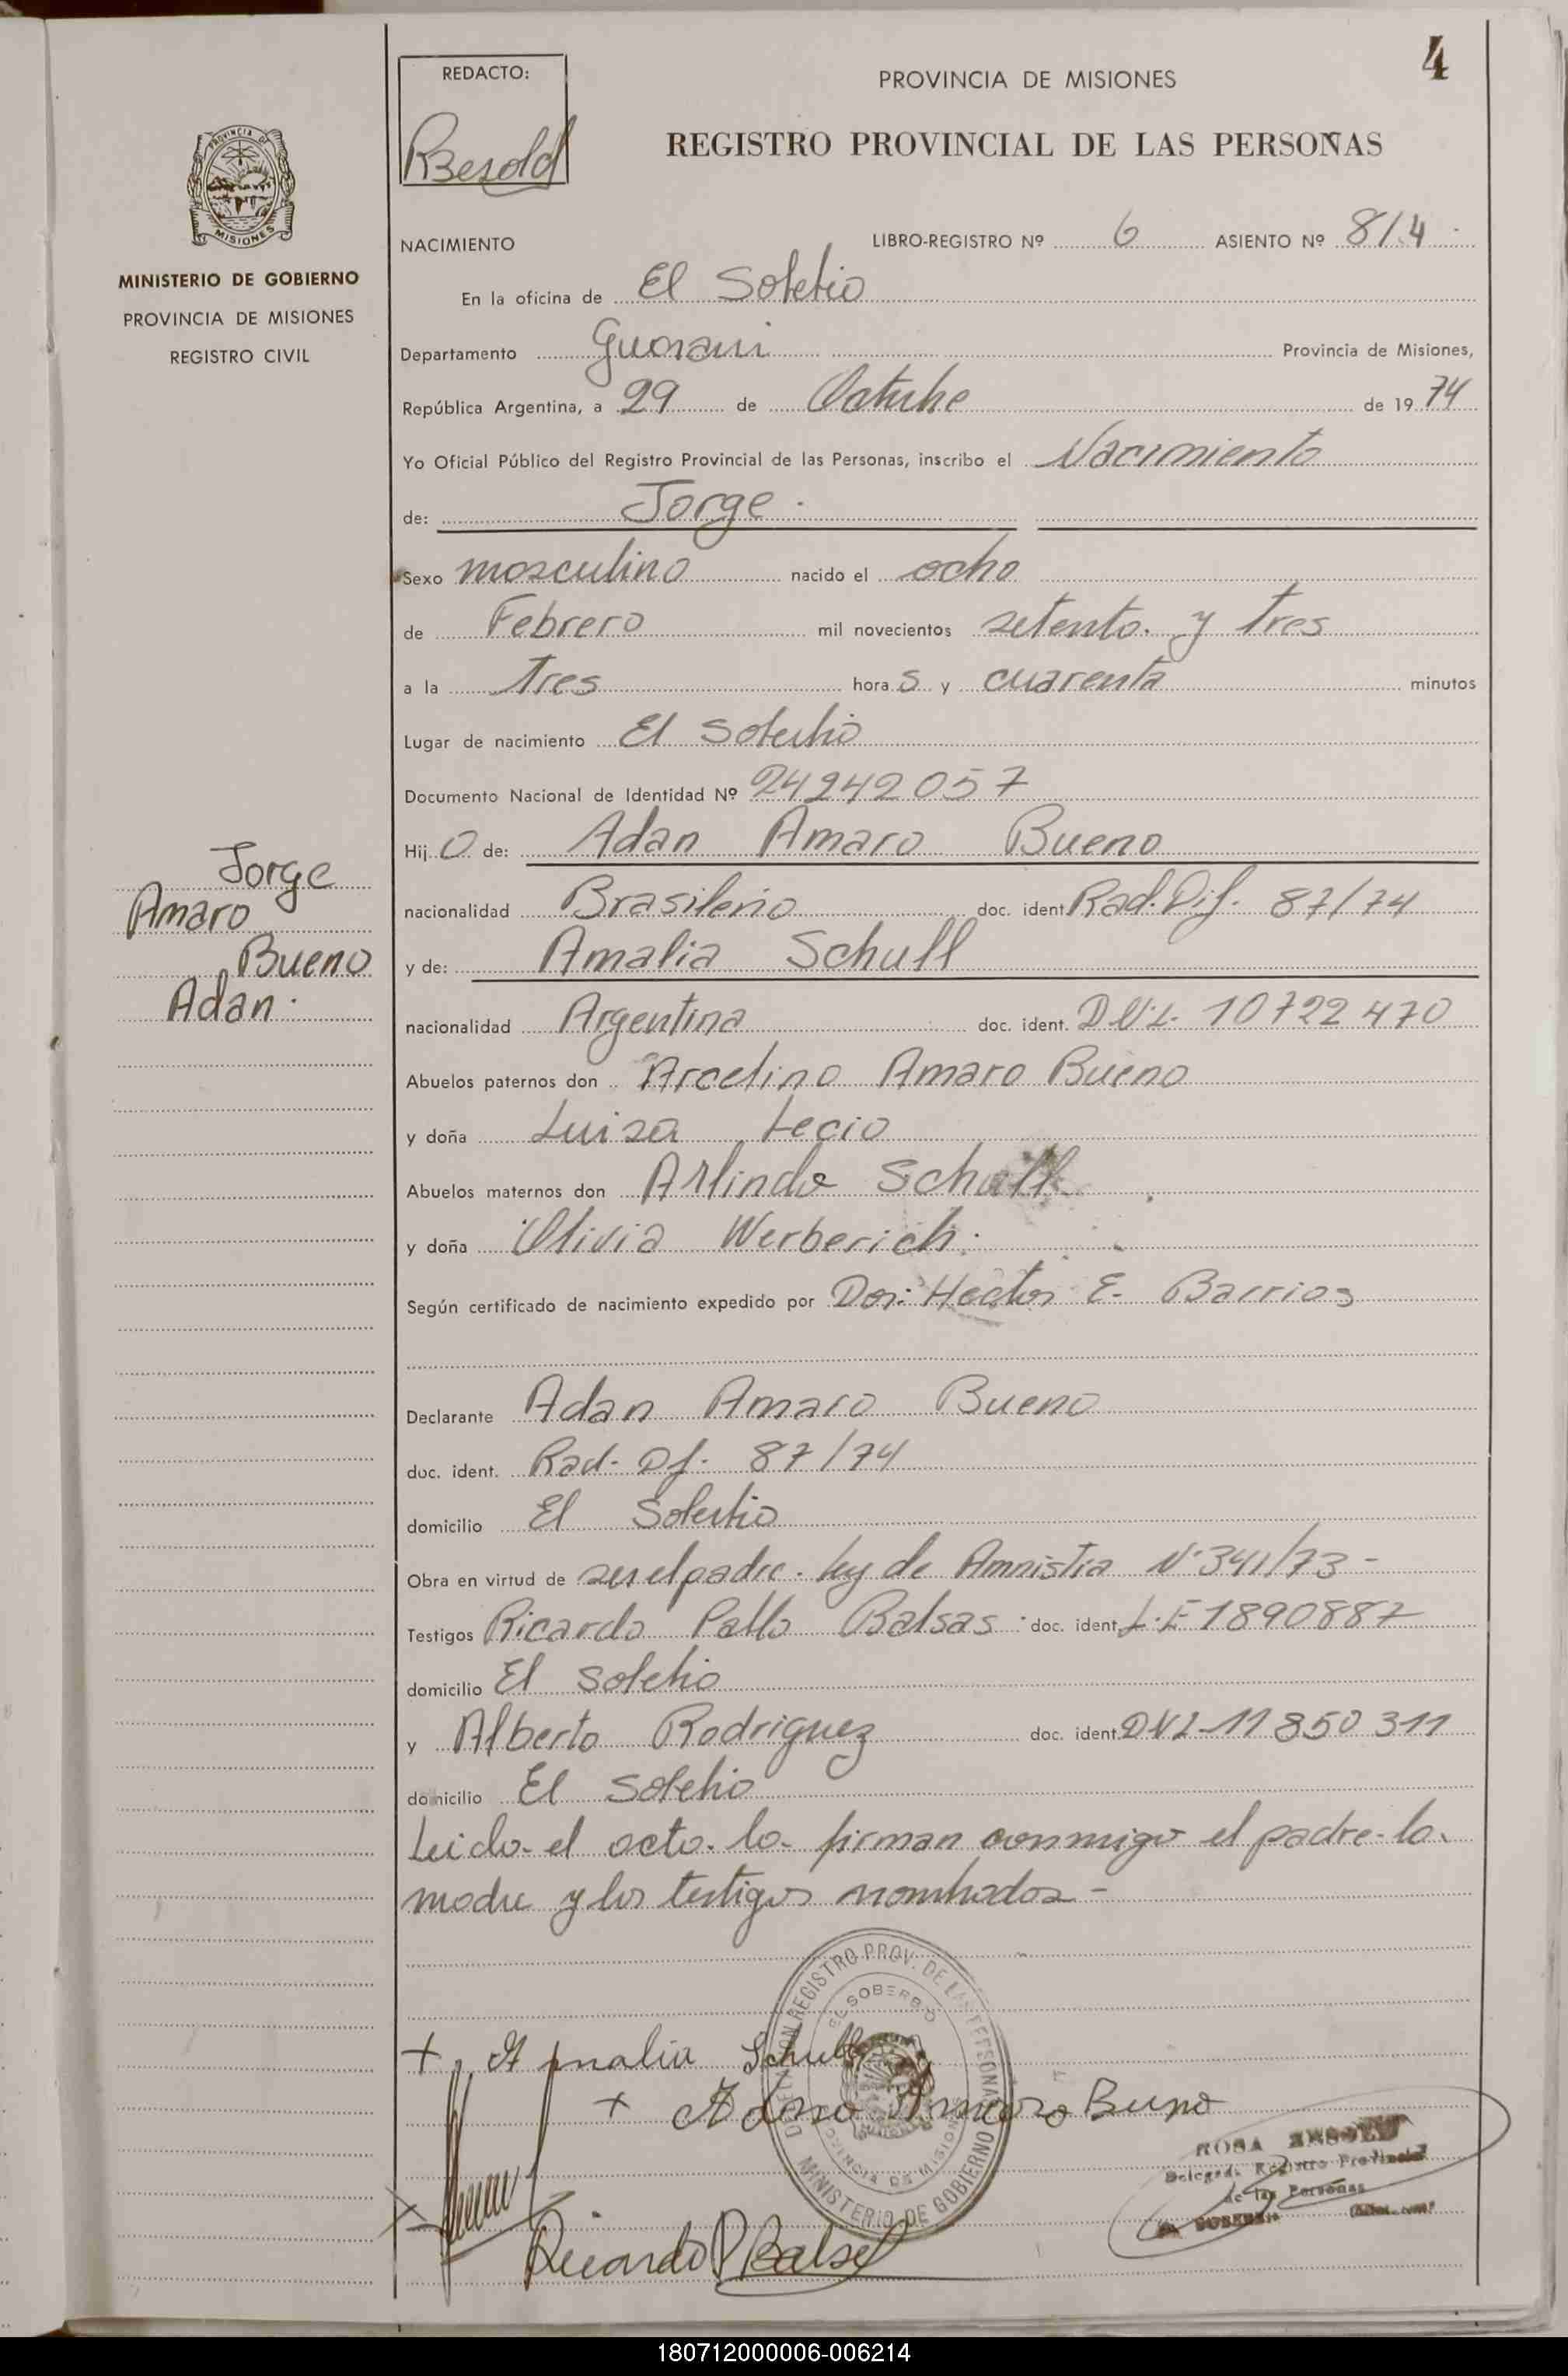 4
REDACTO:
RBesold
PROVINCIA DE MISIONES
REGISTRO PROVINCIAL DE LAS PERSONAS
PROVINCIA DE MISIONES
MINISTERIO DE GOBIERNO
PROVINCIA DE MISIONES
REGISTRO CIVIL
NACIMIENTO LIBRO-REGISTRO Nº 6 ASIENTO Nº 814
En la oficina de El Soberbio
Departamento Guarani Provincia de Misiones,
República Argentina, a 29 de Octubre de 19 74
Yo Oficial Público del Registro Provincial de las Personas, inscribo el Nacimiento
de: Jorge.
Sexo masculino nacido el ocho
de Febrero mil novecientos setenta y tres
a la Tres hora s y cuarenta minutos
Lugar de nacimiento El Soberbio
Documento Nacional de Identidad Nº 24242057
Hij o de: Adan Amaro Bueno
nacionalidad Brasileño doc. ident. Rad. Dif. 87/74
y de: Amalia Schull
nacionalidad Argentina doc. ident. D.N.I. 10722470
Abuelos paternos don Arcelino Amaro Bueno
y doña Luiza Lecio
Abuelos maternos don Arlindo Schull
y doña Olivia Werberich.
Según certificado de nacimiento expedido por Dor: Hector E. Barrios
Declarante Adan Amaro Bueno
doc. ident. Rad. Df. 87/74
domicilio El Soberbio
Obra en virtud de ser el padre. Ley de Amnistia Nº 341/73 -
Testigos Ricardo Pablo Balsas doc. ident. L.E 1890887
domicilio El Soberbio
y Alberto Rodriguez doc. ident. DNI 11850311
domicilio El Soberbio
Leida el acta la firman conmigo el padre la
madre y los testigos nombrados -
Jorge
Amaro
Bueno
Adan.
+ Amalia Schull
+ Adano Amaro Bueno
Ricardo P Balsas
DELEGACION REGISTRO PROV. DE LAS PERSONAS
EL SOBERBIO
PROVINCIA DE MISIONES
MINISTERIO DE GOBIERNO
ROSA BESOLD
Delegada Registro Provincial
de las Personas
180712000006-006214